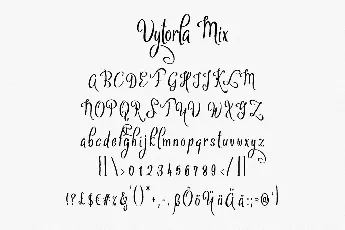 Vytorla Mix
ABCDEFGHIJKLM
NOPQRSTUVWXYZ
abcdefghijklmnopqrstuvwxyz
[]\>0123456789</{}
!?£$€#¥&'()*+,-.ßÖöÜüÄä:;=@')